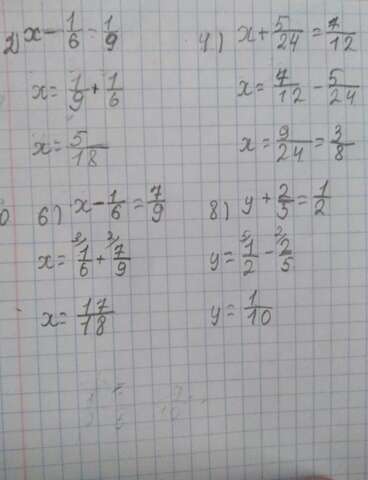 2) x - 1/6 = 1/9
x = 1/9 + 1/6
x = 5/18
4) x + 5/24 = 7/12
x = 7/12 - 5/24
x = 9/24 = 3/8
6) x - 1/6 = 7/9
x = 3/ 1/6 + 2/ 7/9
x = 17/18
8) y + 2/5 = 1/2
y = 5/ 1/2 - 2/ 2/5
y = 1/10